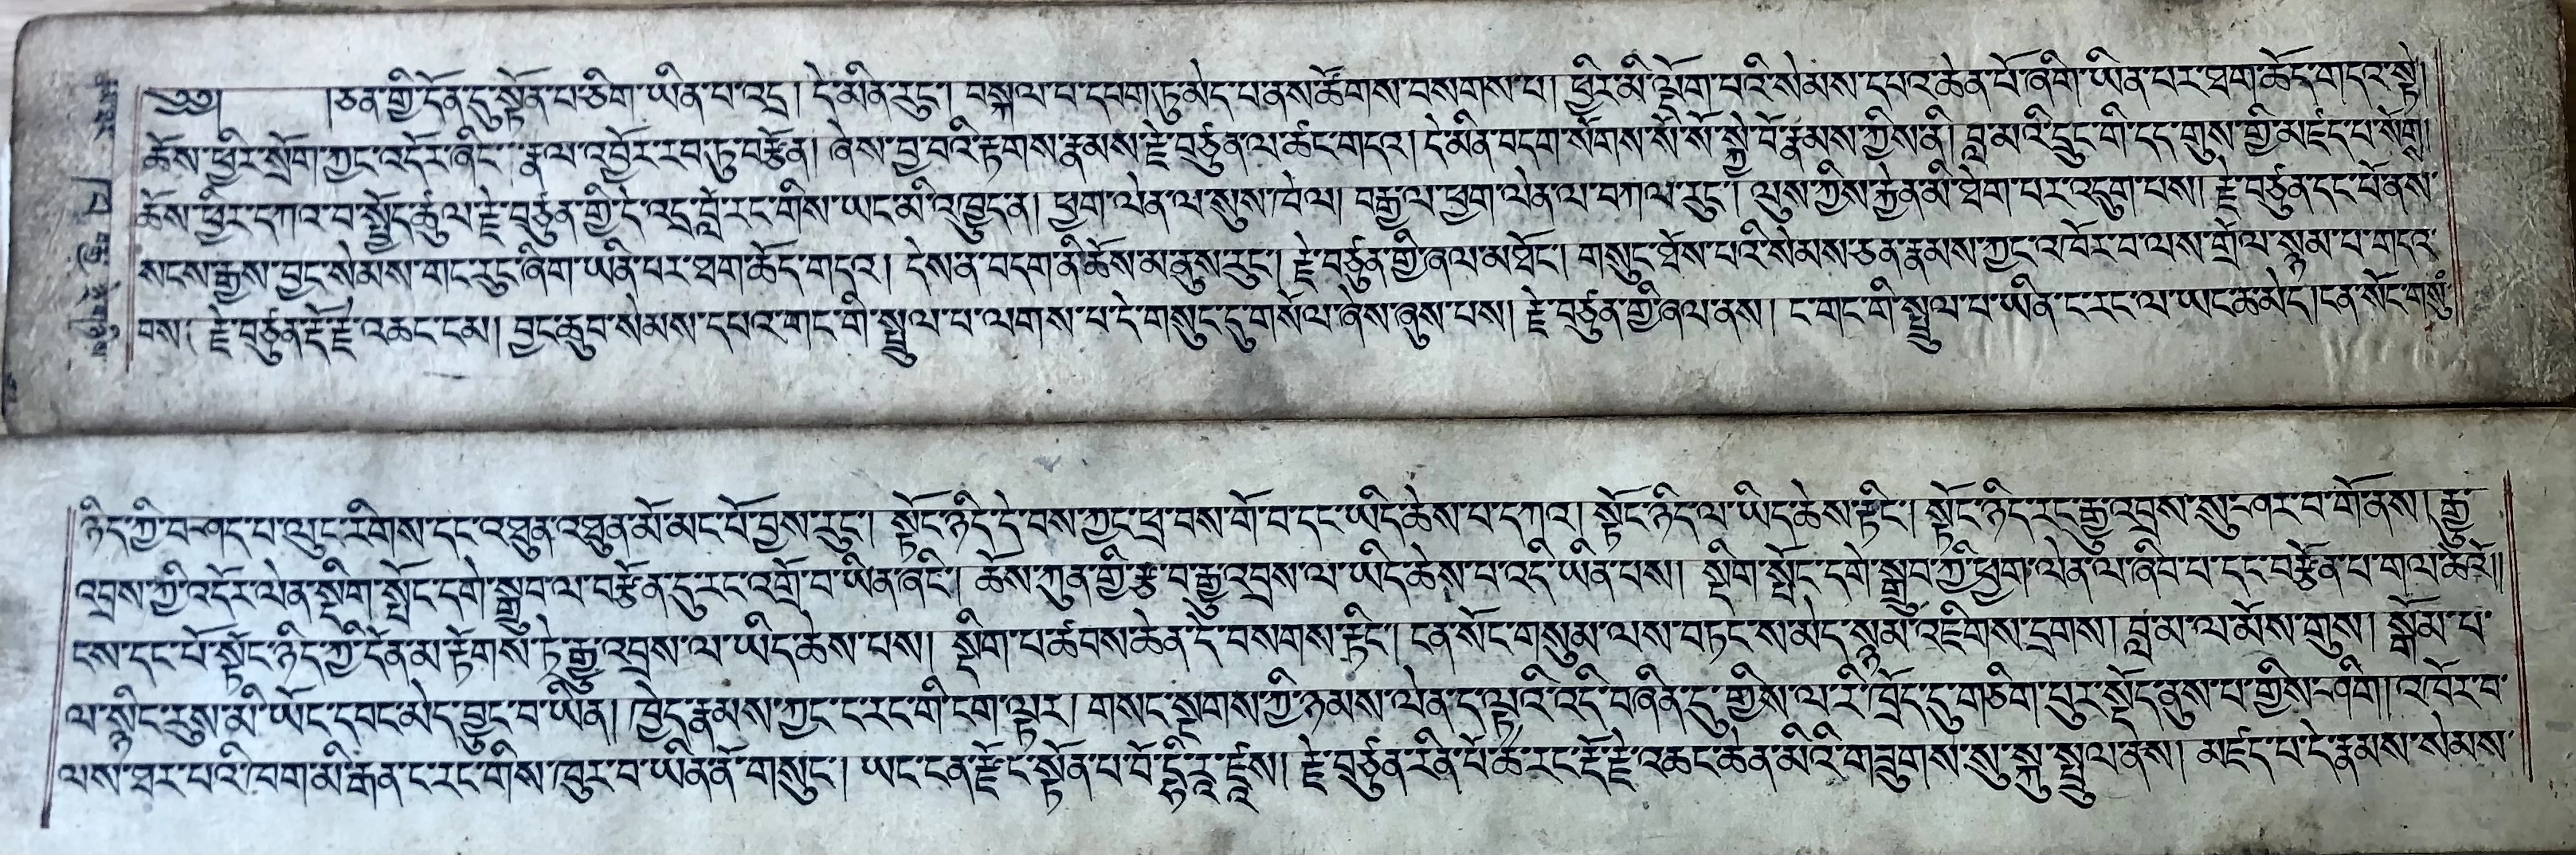 ༄༅། །ཅན་གྱི་དོན་དུ་སྟོན་པ་ཅིག་ཡིན་པ་འདྲ། དེ་མིན་རུང་། བསྐལ་པ་དཔག་ཏུ་མེད་པ་ནས་ཚོགས་བསགས་པ། ཕྱིར་མི་ལྡོག་པའི་སེམས་དཔའ་ཆེན་པོ་ཞིག་ཡིན་པར་ཐག་ཆོད་གདའ་སྟེ།
ཆོས་ཕྱིར་སྲོག་ཀྱང་འདོར་ཞིང་། རྣལ་འབྱོར་རབ་ཏུ་བརྩོན། ཞེས་བྱ་བའི་རྟགས་རྣམས་རྗེ་བཙུན་ལ་ཚང་གདའ། དེ་མིན་བདག་སོགས་སོ་སོ་སྐྱེ་བོ་རྣམས་ཀྱིས་ནི། བླ་མའི་དྲུང་གི་དད་གུས་གྱི་མཛད་པ་སོགས།
ཆོས་ཕྱིར་དཀའ་བ་སྤྱོད་ཚུལ་རྗེ་བཙུན་གྱི་དེ་འདྲ་བློ་རང་གིས་ཡང་མི་འཁྱུད་ན། ཕྱག་ལེན་ལ་སུས་ཁེལ། བརྒྱལ་ཕྱག་ལེན་ལ་བཀལ་རུང་། ལུས་ཀྱིས་རྐྱེན་མི་ཐེག་པར་འདུག་པས། རྗེ་བཙུན་དང་པོ་ནས་
སངས་རྒྱས་བྱང་སེམས་གང་རུང་ཞིག་ཡིན་པར་ཐག་ཆོད་གདའ། དེས་ན་བདག་ནི་ཆོས་མ་ནུས་རུང་། རྗེ་བཙུན་གྱི་ཞལ་མཐོང་། གསུང་ཐོས་པའི་སེམས་ཅན་རྣམས་ཀྱང་འཁོར་བ་ལས་གྲོལ་སྙམ་པ་གདའ་
བས། རྗེ་བཙུན་རྡོ་རྗེ་འཆང་ངམ། བྱང་ཆུབ་སེམས་དཔའ་གང་གི་སྤྲུལ་པ་ལགས་པ་དེ་གསུང་དུ་གསོལ་ཞེས་ཞུས་པས། རྗེ་བཙུན་གྱི་ཞལ་ནས། ང་གང་གི་སྤྲུལ་པ་ཡིན་ང་རང་ལ་ཡང་ཆ་མེད། ངན་སོང་གསུཾ་
ཉིད་ཀྱི་བཤད་པ་ལུང་རིགས་དང་འཐུན་འཐུན་མོ་མང་པོ་བྱས་རུང་། སྟོང་ཉིད་དེ་བས་ཀྱང་ཕྲ་བས་གོ་བ་དང་ཡིད་ཆེས་པ་དཀའ། སྟོང་ཉིད་ལ་ཡིད་ཆེས་རྟིང་། སྟོང་ཉིད་རང་རྒྱུ་འབྲས་སུ་ཤར་བ་གོ་ནས། རྒྱུ་
འབྲས་ཀྱི་འདོར་ལེན་སྡིག་སྤོང་དགེ་སྒྲུབ་ལ་བརྩོན་དུ་རང་འགྲོ་བ་ཡིན་ཞིང་། ཆོས་ཀུན་གྱི་རྩ་བ་རྒྱུ་འབྲས་ལ་ཡིད་ཆེས་པ་འདི་ཡིན་པས། སྡིག་སྤོང་དགེ་སྒྲུབ་ཀྱི་ཕྱག་ལེན་ལ་ཞིབ་པ་དང་བརྩོན་པ་གལ་ཆེའོ།།
ངས་དང་པོ་སྟོང་ཉིད་ཀྱི་དོན་མ་རྟོགས་ཏེ་རྒྱུ་འབྲས་ལ་ཡིད་ཆེས་པས། སྡིག་པ་ཚབས་ཆེན་དེ་བསགས་རྟིང་། ངན་སོང་གསུམ་ལས་བཏང་ས་མེད་སྙམ་འཇིགས་དྲགས། བླ་མ་ལ་མོས་གུས། སྒོམ་པ་
ལ་སྙིང་རུས་མི་ཡོང་དབང་མེད་བྱུང་བ་ཡིན། ཁྱེད་རྣམས་ཀྱང་ང་རང་གི་ངག་ལྟར། གསང་སྔགས་ཀྱི་ཉམས་ལེན་ད་ལྟའི་འདི་བཞིན་དུ་གྱིས་ལ་རི་ཁྲོད་དུ་གཅིག་པུར་སྡོད་ནུས་པ་གྱིས་ཤིག། འཁོར་བ་
ལས་ཐར་པའི་ཁག་མི་རྒན་ང་རང་གིས་ཁུར་བ་ཡིན་ནོ་གསུང་། ཡང་ངན་རྫོང་སྟོན་པ་བོ་དྷི་རཱ་ཛས། རྗེ་བཙུན་རིན་པོ་ཆེ་རང་རྡོ་རྗེ་འཆང་ཆེན་མིའི་གཟུགས་སུ་སྐུ་སྤྲུལ་ནས། མཛད་པ་དེ་རྣམས་སེམས་